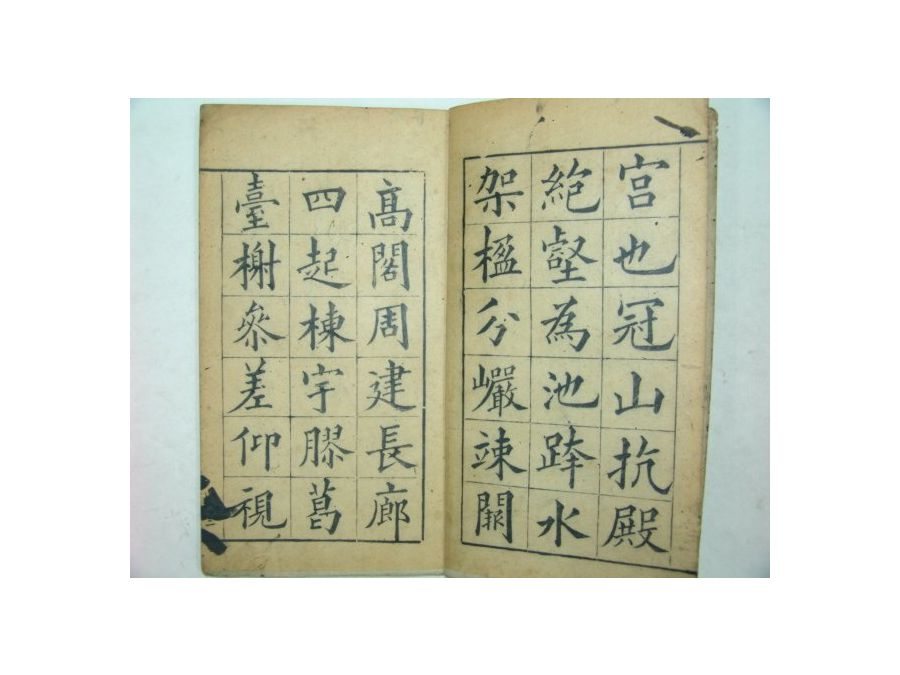 宫也冠山抗殿
絶壑為池跨水
架楹分巖竦闕
髙閣周建長廊
四起棟宇膠葛
臺榭叅差仰視